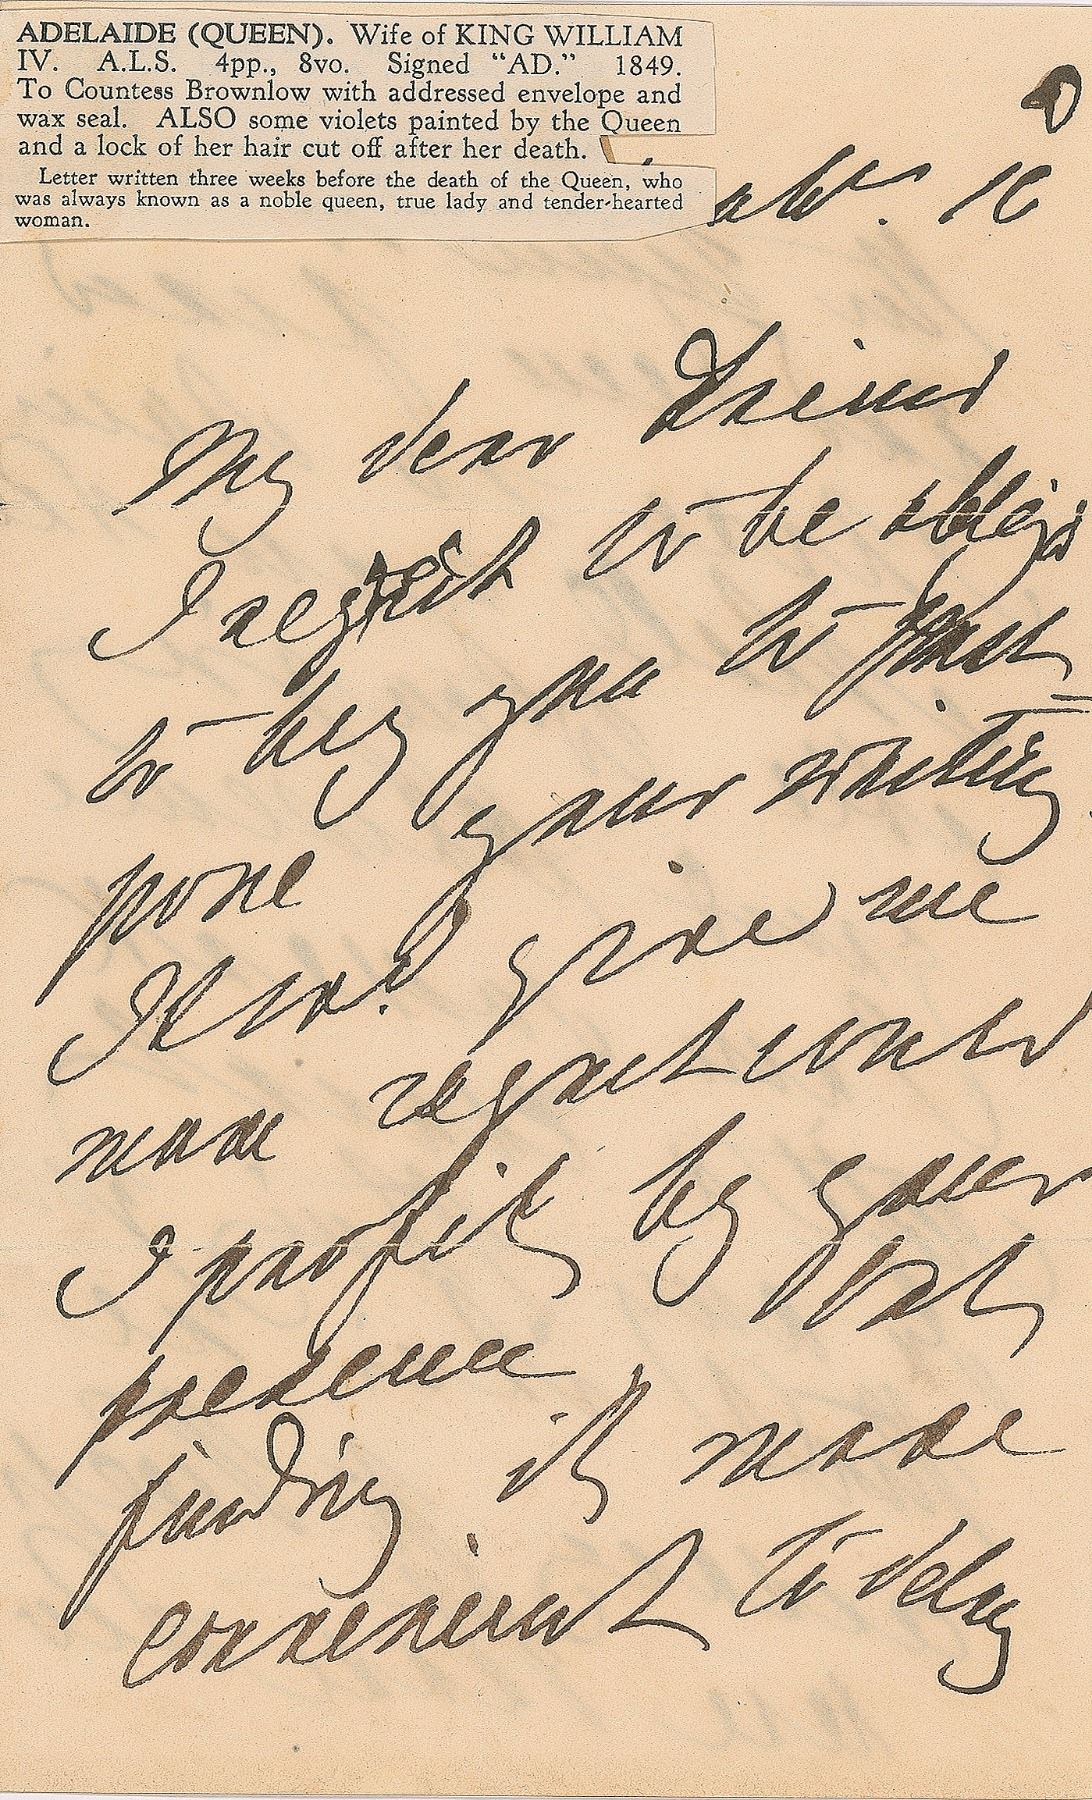 ADELAIDE (QUEEN). Wife of KING WILLIAM
IV. A.L.S. 4pp., 8vo. Signed "AD." 1849.
To Countess Brownlow with addressed envelope and
wax seal. ALSO some violets painted by the Queen
and a lock of her hair cut off after her death.
Letter written three weeks before the death of the Queen, who
was always known as a noble queen, true lady and tender-hearted
woman.
16
My dear Friend
I regret to be obliged
to beg you to post
pone your waiting
It will give me
more regret could
I profit by your
presence but
finding it more
convenient to delay